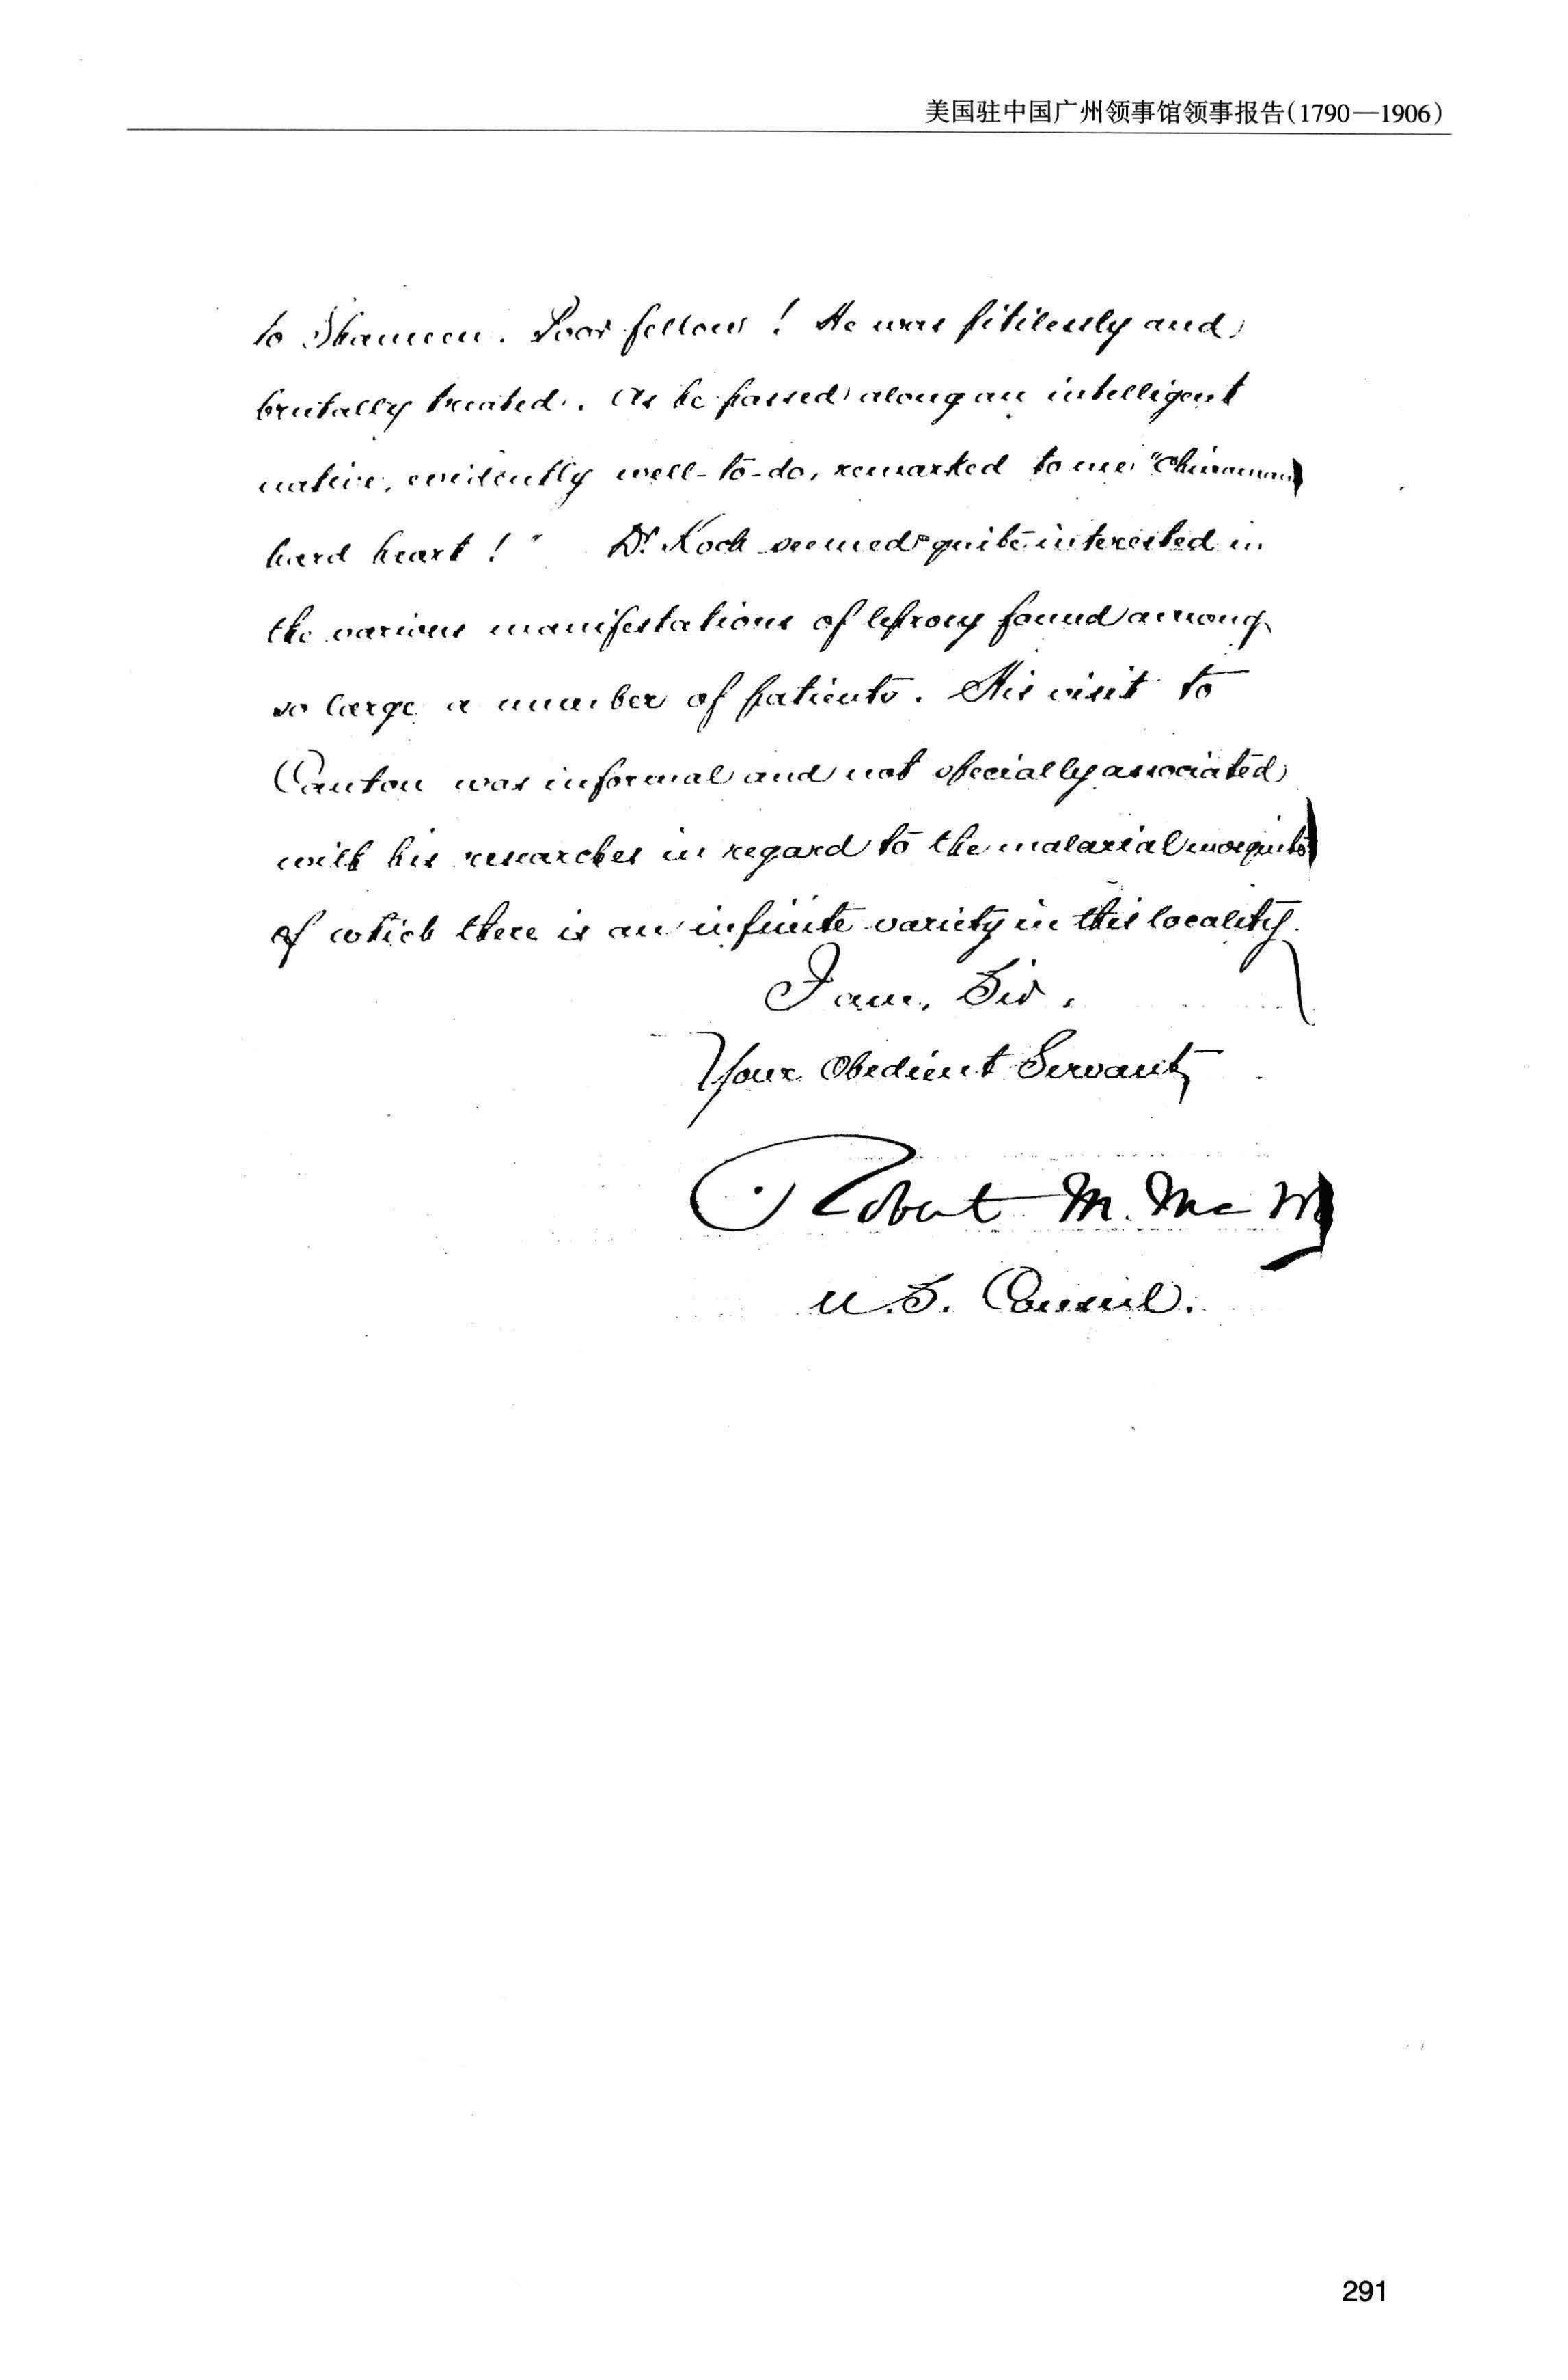 美国驻中国广州领事馆领事报告(1790—1906)
to Shameen. Poor fellow! He was pitilessly and
brutally treated. As he passed along an intelligent
native, evidently well-to-do, remarked to me "Chinaman
hard heart!" Dr. Koch seemed quite interested in
the various manifestations of leprosy found among
so large a number of patients. His visit to
Canton was informal and not specially associated
with his researches in regard to the malarial mosquito
of which there is an infinite variety in this locality.
I am, Sir,
Your Obedient Servant,
Robert M. Mc W
U.S. Consul.
291